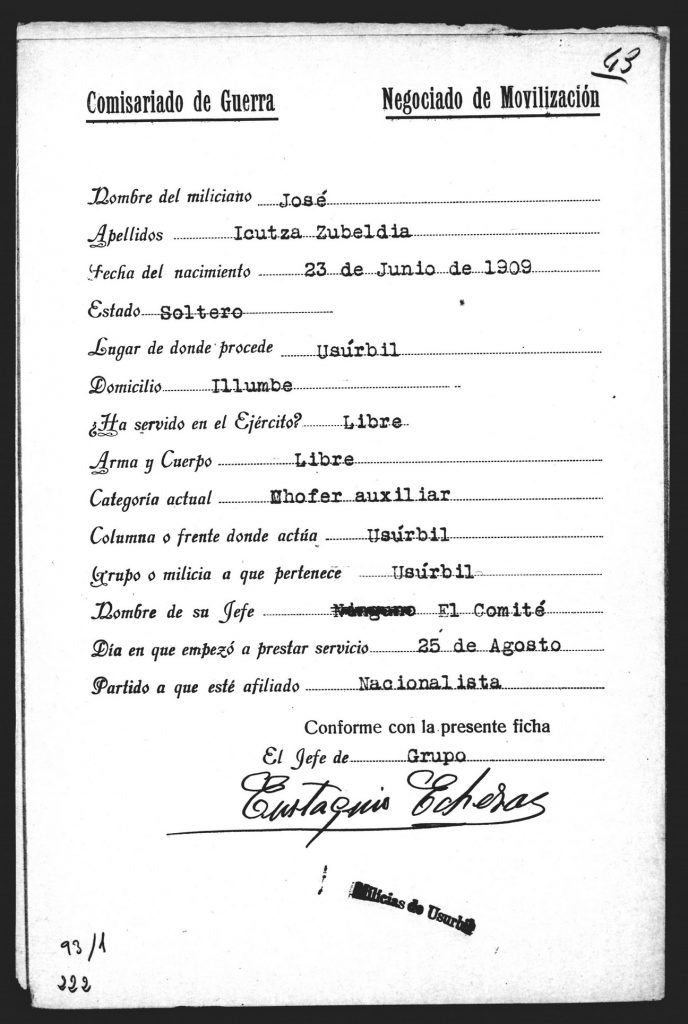 43
Comisariado de Guerra Negociado de Movilización
Nombre del miliciano José
Apellidos Icutza Zubeldia
Fecha del nacimiento 23 de Junio de 1909
Estado Soltero
Lugar de donde procede Usúrbil
Domicilio Illumbe
¿Ha servido en el Ejército? Libre
Arma y Cuerpo Libre
Categoría actual Chofer auxiliar
Columna o frente donde actúa Usúrbil
Grupo o milicia a que pertenece Usúrbil
Nombre de su Jefe Ninguno El Comité
Día en que empezó a prestar servicio 25 de Agosto
Partido a que esté afiliado Nacionalista
Conforme con la presente ficha
El Jefe de Grupo
Eustaquio
Milicias de Usurbil
93/1
222